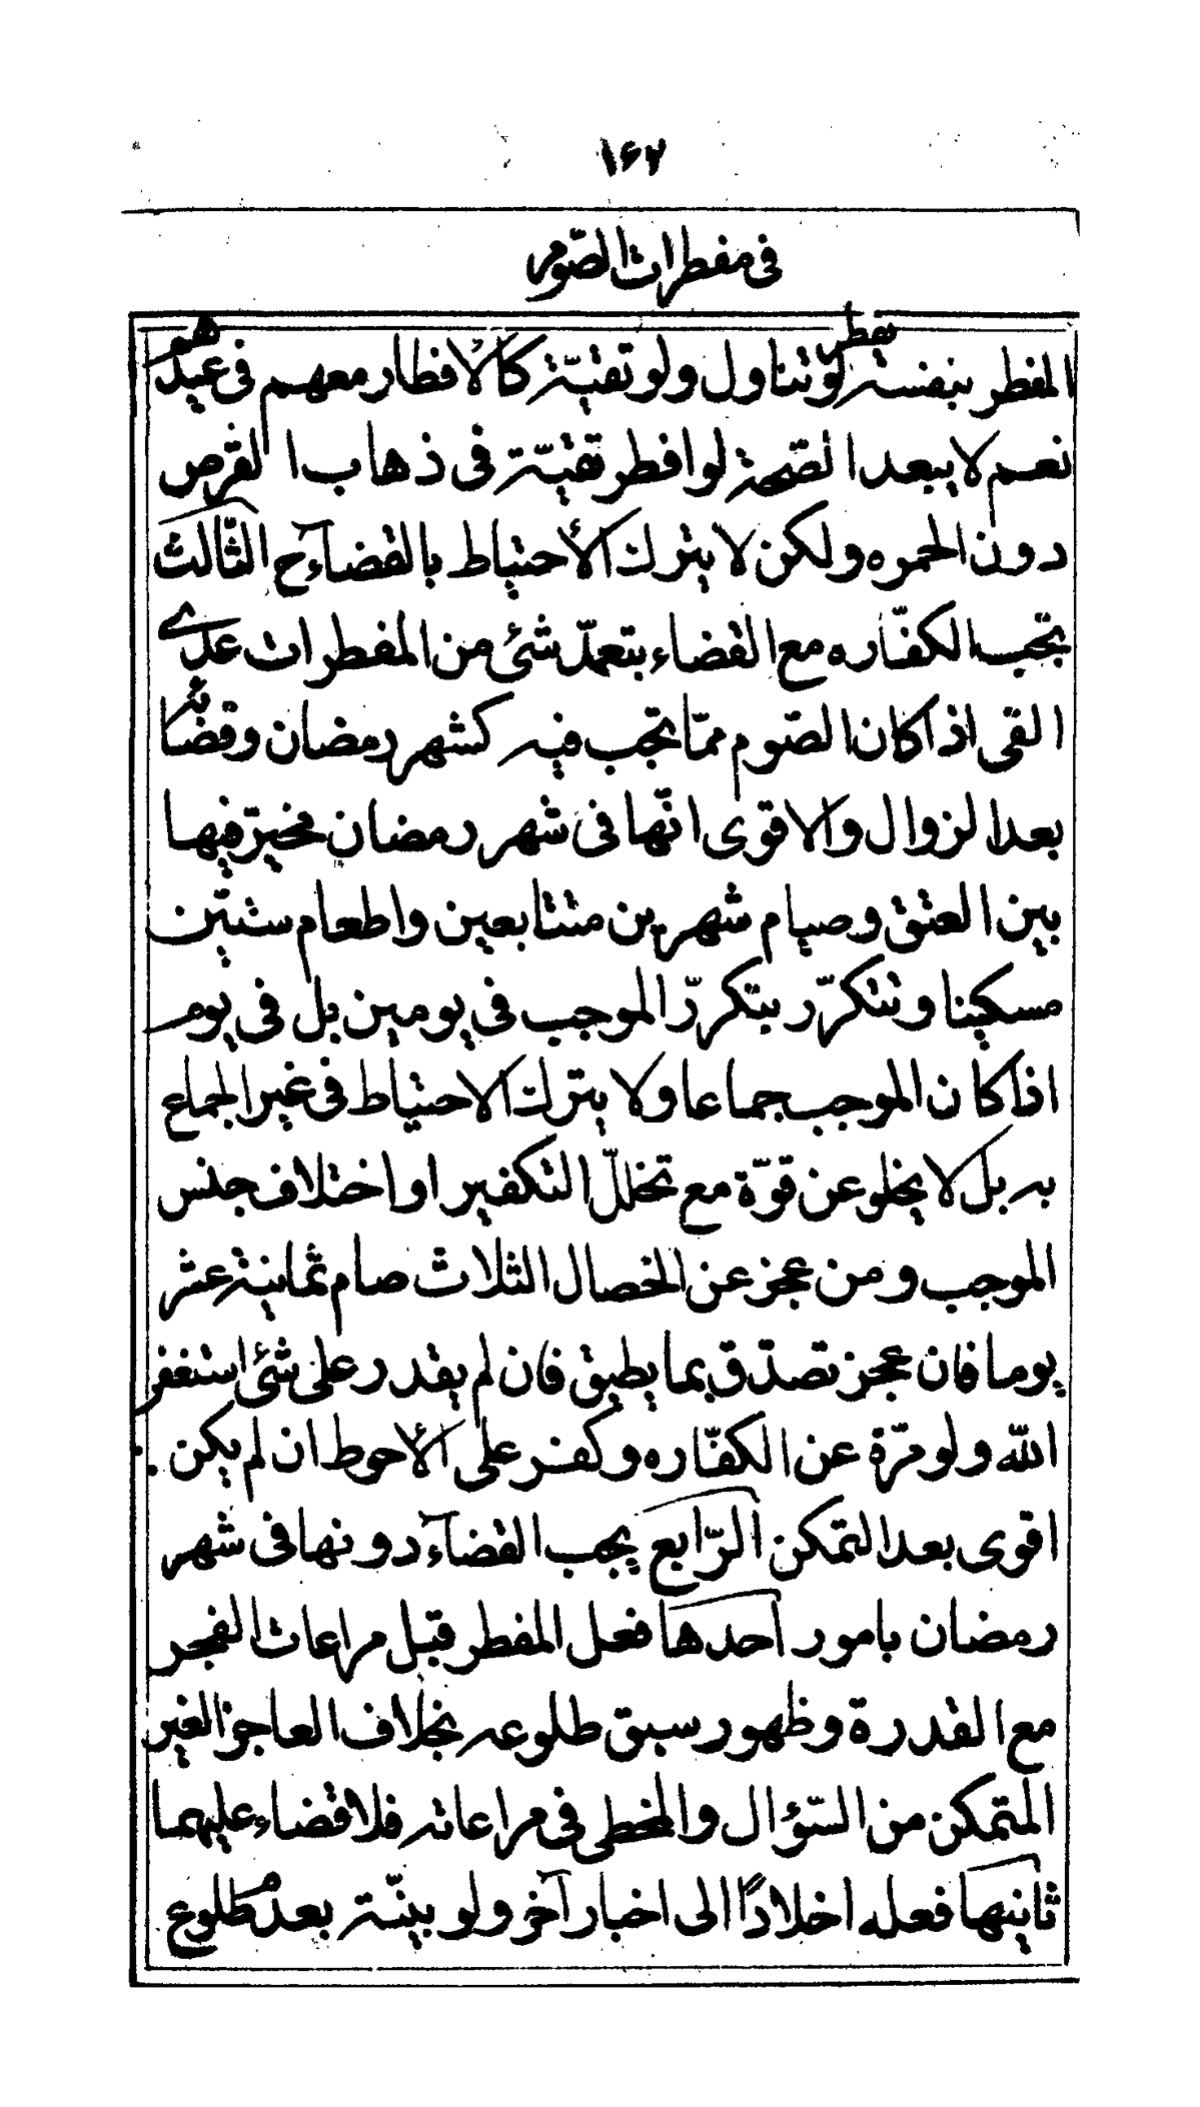 ١٦٢
فى مفطرات الصّوم
المفطر بنفسه يفطر لو تناول ولو تقيّة كالافطار معهم فى عيدهم
نعم لا يبعد الصّحة لو افطر تقيّة فى ذهاب القرص
دون الحمره ولكن لا يترك الأحتياط بالقضآء ح الثّالث
تجب الكفّاره مع القضاء بتعمّد شئ من المفطرات عدى
القى اذا كان الصّوم ممّا تجب فيه كشهر رمضان وقضائه
بعد الزوال والاقوى انّها فى شهر رمضان مخيرّ فيها
بين العتق وصيام شهرين متتابعين واطعام ستّين
مسكينا وتتكرّر بتكررّ الموجب فى يومين بل فى يوم
اذا كان الموجب جماعا ولا يترك الاحتياط فى غير الجماع
به بل لا يخلو عن قوّة مع تخللّ التكفير او اختلاف جنس
الموجب ومن عجز عن الخصال الثلاث صام ثمانية عشر
يوما فان عجز تصدّق بما يطيق فان لم يقدر على شئ استغفر
اللّه ولو مرّة عن الكفّاره وكفر على الأحوط ان لم يكن
اقوى بعد التمكن الرّابع يجب القضآء دونها فى شهر
رمضان بامور احدها فعل المفطر قبل مراعات الفجر
مع القدرة وظهور سبق طلوعه بخلاف العاجز الغير
المتمكن من السّؤال والمخطى فى مراعاته فلا قضاء عليهما
ثانيها فعله اخلادًا الى اخبار آخر ولو بيّنة بعدم طلوع